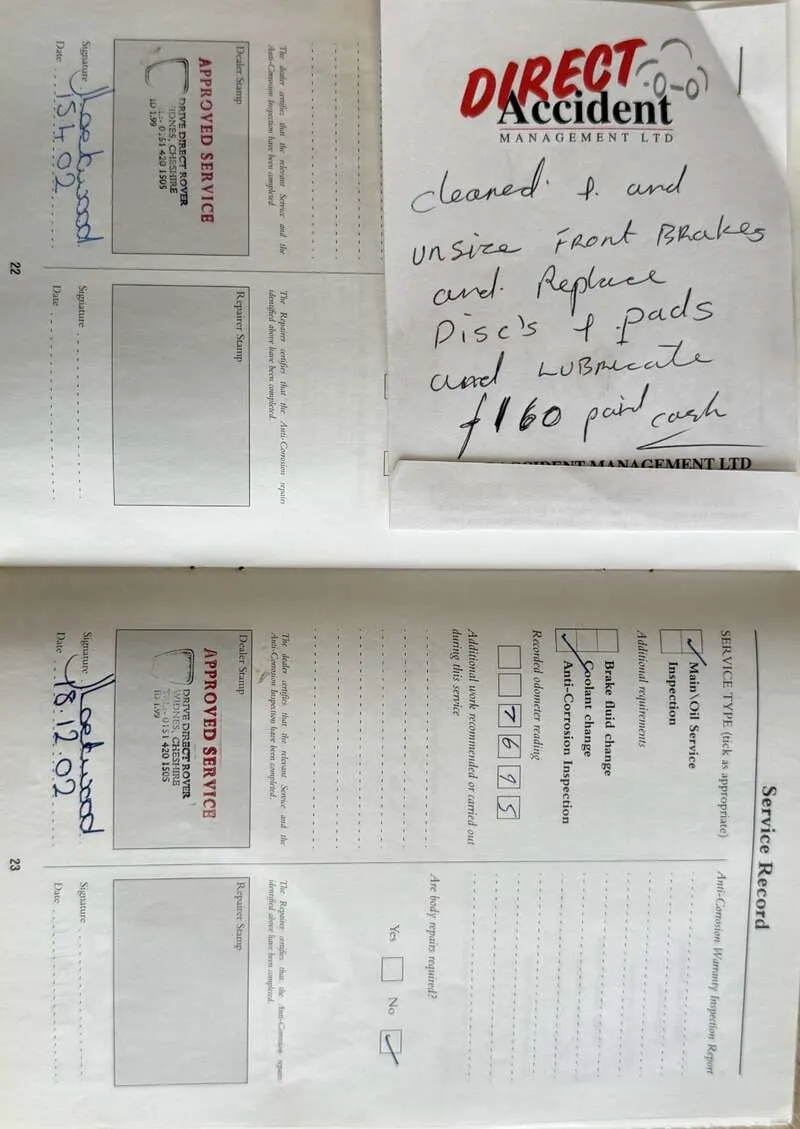 DIRECT
Accident
MANAGEMENT LTD
cleaned & and
unsize FRONT BRAKES
and Replace
Disc's & pads
and LUBRicate
£160 paid cash
ACCIDENT MANAGEMENT LTD
The dealer certifies that the relevant Service and the
Anti-Corrosion Inspection have been completed.
Dealer Stamp
APPROVED SERVICE
DRIVE DIRECT ROVER
WIDNES, CHESHIRE
TEL:- 0151 420 1505
ID 1.99
Signature
Date 15.4.02
The Repairer certifies that the Anti-Corrosion repairs
identified above have been completed.
Repairer Stamp
Signature
Date
22
Service Record
SERVICE TYPE (tick as appropriate)
Main\Oil Service
Inspection
Additional requirements
Brake fluid change
Coolant change
Anti-Corrosion Inspection
Recorded odometer reading
7 6 9 5
Additional work recommended or carried out
during this service
The dealer certifies that the relevant Service and the
Anti-Corrosion Inspection have been completed.
Dealer Stamp
APPROVED SERVICE
DRIVE DIRECT ROVER
WIDNES, CHESHIRE
TEL:- 0151 420 1505
ID 1.99
Signature
Date 18.12.02
Anti-Corrosion Warranty Inspection Report
Are body repairs required?
Yes No
The Repairer certifies that the Anti-Corrosion repairs
identified above have been completed.
Repairer Stamp
Signature
Date
23